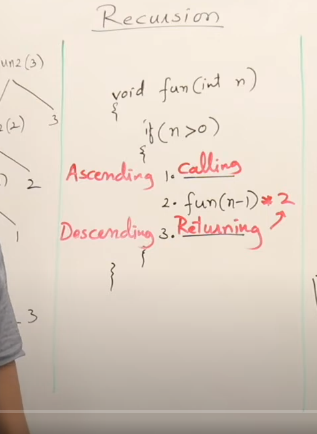 Recursion
un2(3)
(2)
3
)
2
1
3
void fun(int n)
{
if(n>0)
{
Ascending 1. Calling
2. fun(n-1)*2
Descending 3. Returning
}
}